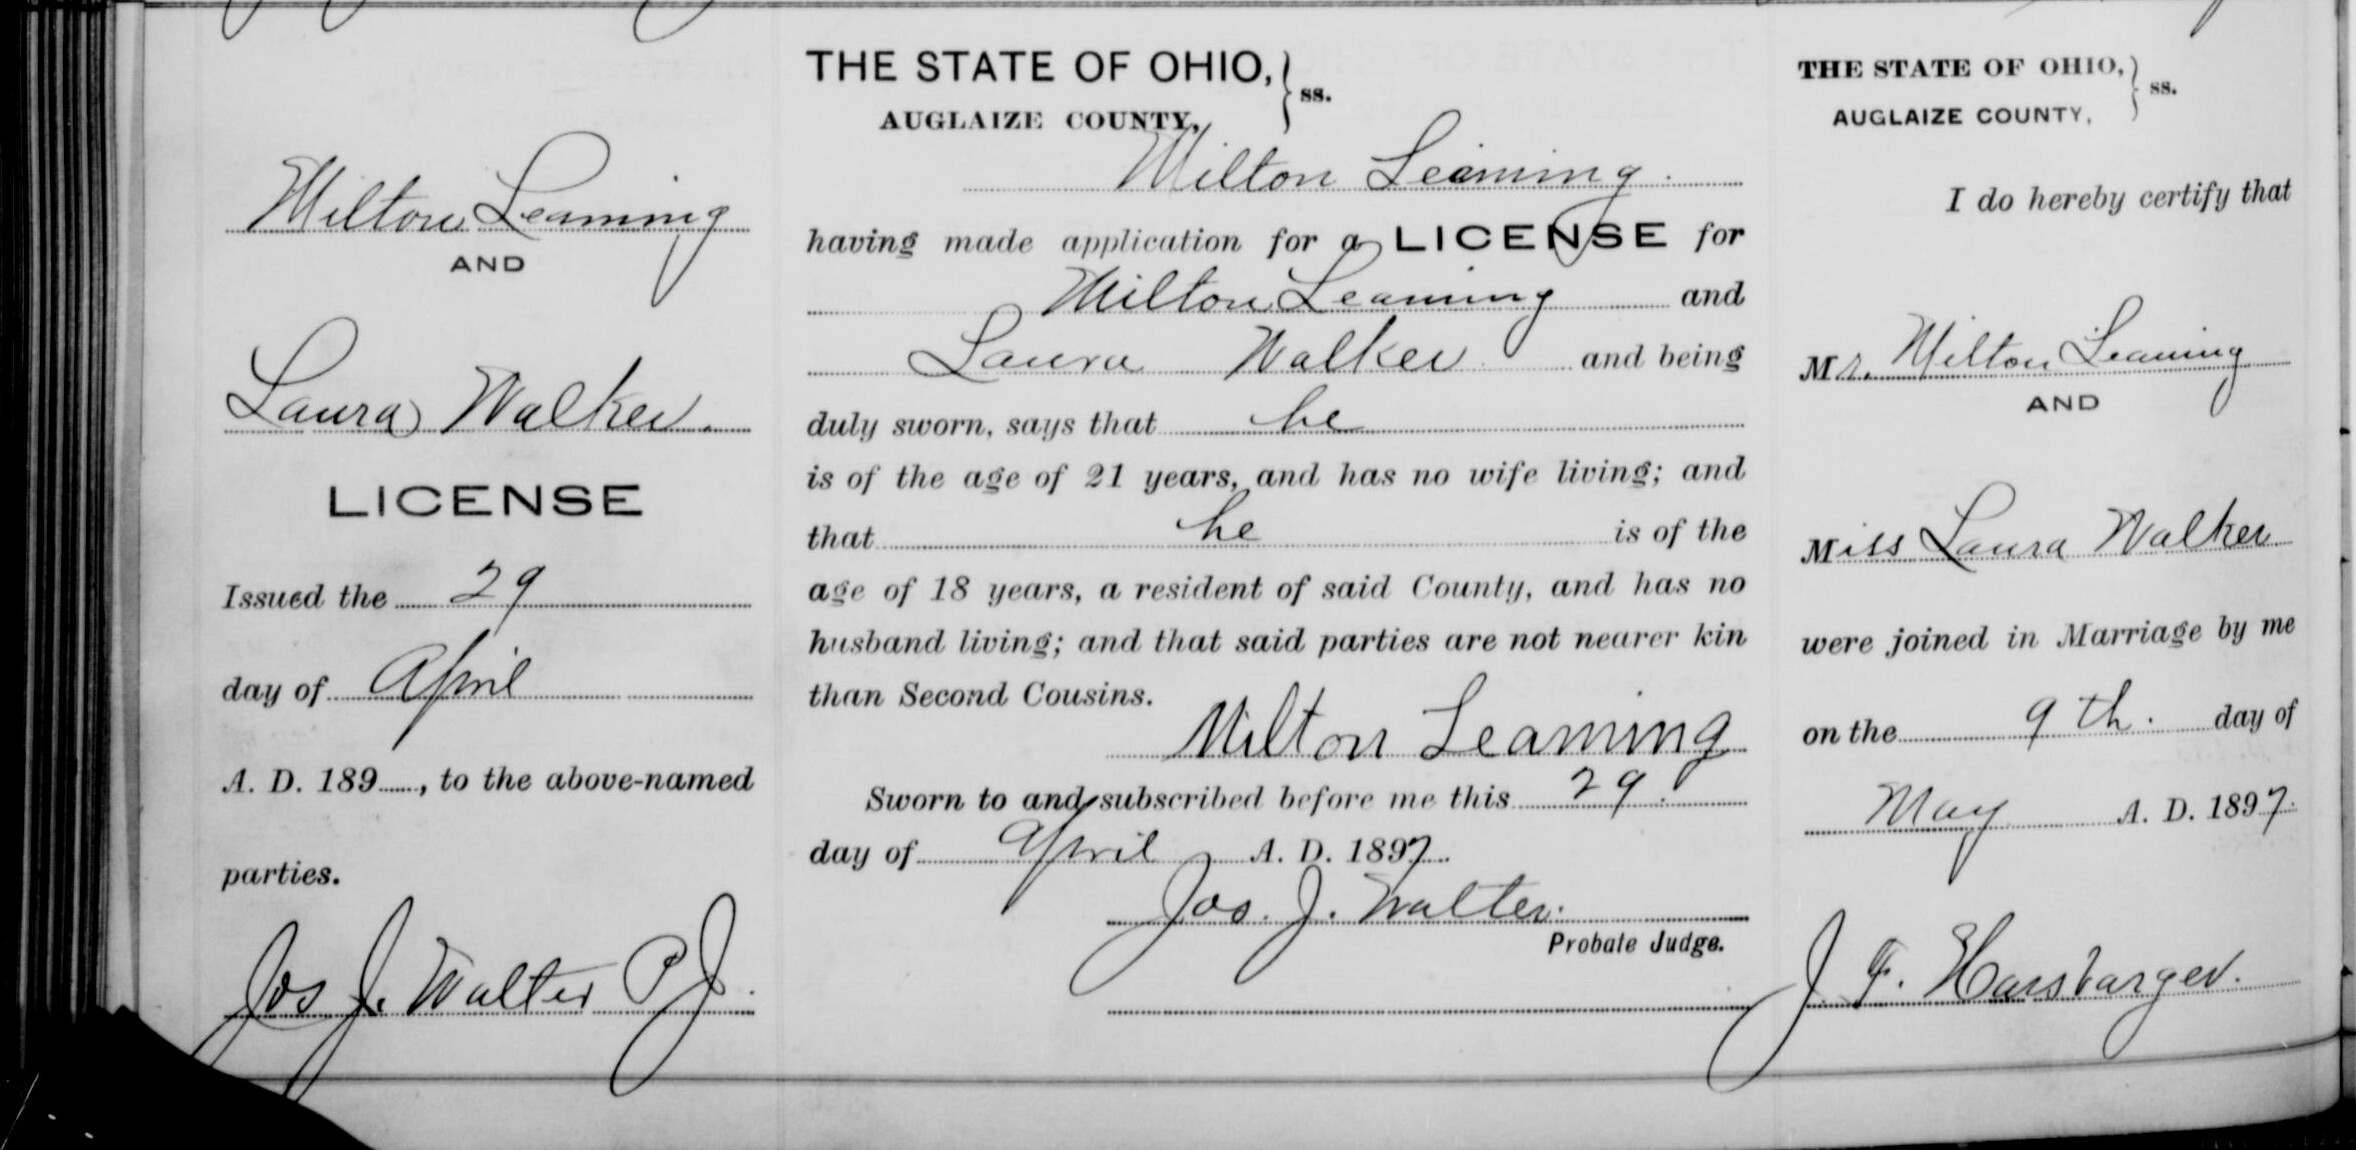 Milton Leaming
AND
Laura Walker.
LICENSE
Issued the 29
day of April
A. D. 189....., to the above-named
parties.
Jos J. Walter P J.
THE STATE OF OHIO, } ss.
AUGLAIZE COUNTY,
Milton Leaming.
having made application for a LICENSE for
Milton Leaming and
Laura Walker and being
duly sworn, says that he
is of the age of 21 years, and has no wife living; and
that he is of the
age of 18 years, a resident of said County, and has no
husband living; and that said parties are not nearer kin
than Second Cousins.
Milton Leaming
Sworn to and subscribed before me this 29.
day of April A. D. 1897.
Jos. J. Walter.
Probate Judge.
THE STATE OF OHIO, } ss.
AUGLAIZE COUNTY,
I do hereby certify that
Mr. Milton Leaming
AND
Miss Laura Walker
were joined in Marriage by me
on the 9th. day of
May A. D. 1897.
J. F. Harsbarger.